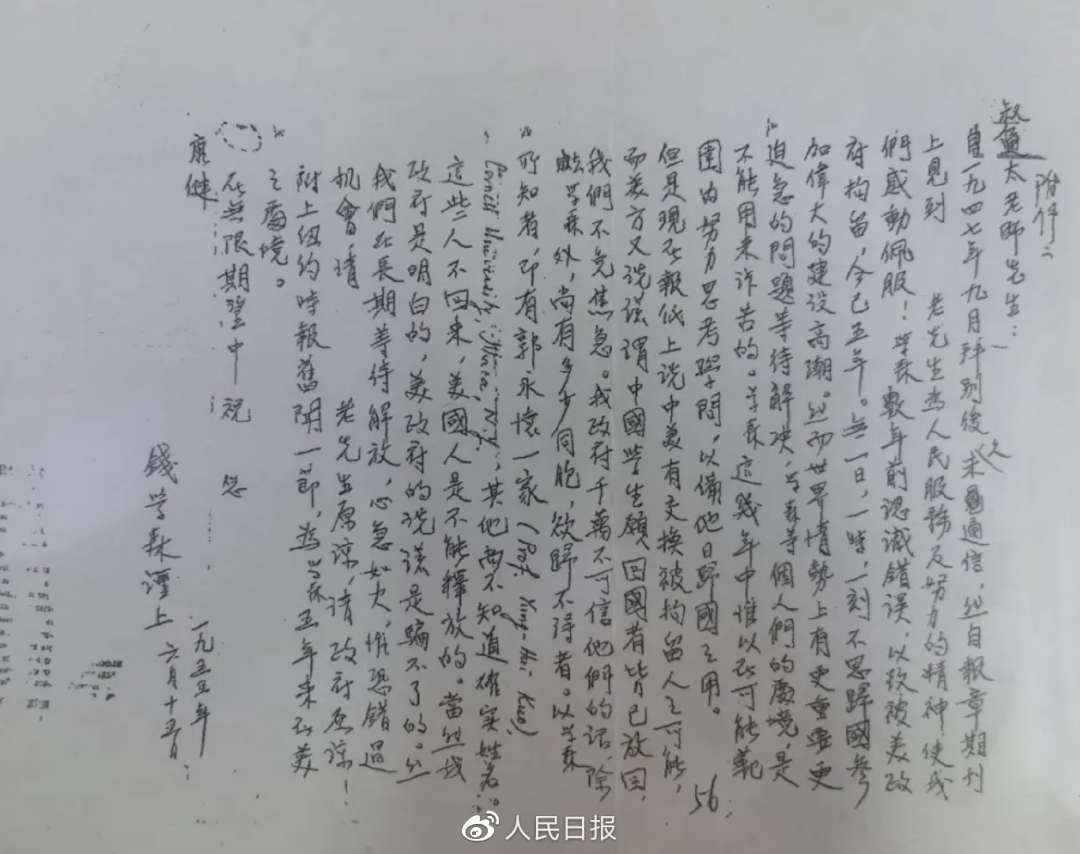 附件二
叔通太老师先生：
自一九四七年九月拜别后久未通信，然自報章期刊
上見到　老先生為人民服務及努力的精神使我
們感動佩服！學森數年前認識錯誤，以致被美政
府拘留，今已五年。無一日，一時，一刻不思歸國參
加偉大的建設高潮。然而世界情勢上有更重要更
迫急的問題等待解决，学森等個人們的處境，是
不能用来诉苦的。学森這幾年中惟以在可能範
圍内努力思考學問，以備他日歸國之用。
但是現在報纸上说中美有交換被拘留人之可能，
而美方又说谎謂中國学生願回國者皆已放回，
我們不免焦急。我政府千萬不可信他們的话，除
学森外，尚有多少同胞，欲歸不得者。以学森
所知者，即有郭永懷一家（Prof. Yung-Huai Kuo,
Cornell University, Ithaca, N.Y.），其他尚不知道確实姓名。
這些人不回来，美國人是不能釋放的。當然我
政府是明白的，美政府的说谎是騙不了的。然
我們在長期等待解放，心急如火，惟恐錯過
机會，请　老先生原諒，请政府原諒！
附上纽约時報舊聞一節，為学森五年来在美
之處境。
在無限期望中祝　您
康健
錢学森謹上
一九五五年
六月十五日
56
人民日报